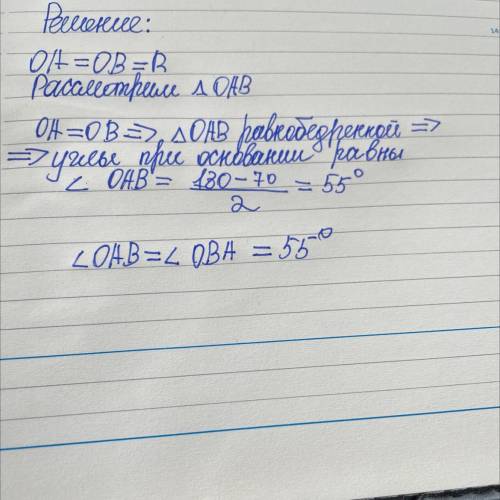 Решение:
OA = OB = R
Рассмотрим △ OAB
OA = OB => △ OAB равнобедренной =>
=> углы при основании равны
∠ OAB = \frac{180 - 70}{2} = 55°
∠OAB = ∠ OBA = 55°